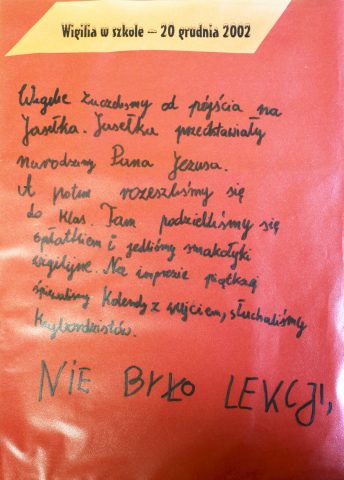 Wigilia w szkole – 20 grudnia 2002
Wigilie zaczeliśmy od pójścia na
Jasełka. Jasełka przedstawiały
narodziny Pana Jezusa.
A potem rozeszliśmy się
do klas. Tam podzieliliśmy się
opłatkiem i jedliśmy smakołyki
wigilijne. Na imprezie piętknej
śpiewaliśmy Kolendy z wujciem, słuchaliśmy
Keybordzistów.
NIE BYŁO LEKCJI,